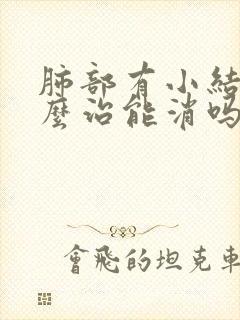 肺部有小結
麼治能消吗
會飛的坦克車